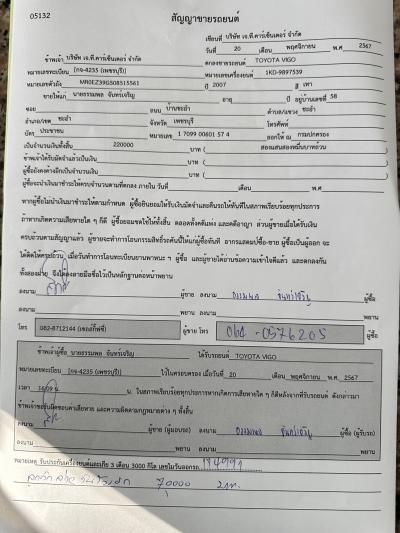 05132
สัญญาขายรถยนต์
เขียนที่ บริษัท เจ.ที.คาร์เซ็นเตอร์ จำกัด
วันที่ 20 เดือน พฤศจิกายน พ.ศ 2567
ข้าพเจ้า บริษัท เจ.ที.คาร์เซ็นเตอร์ จำกัด ตกลงขายรถยนต์ TOYOTA VIGO
หมายเลขทะเบียน (กจ-4235 (เพชรบุรี)) หมายเลขเครื่องยนต์ 1KD-9897539
หมายเลขตัวถัง MR0EZ39G508515561 ปี 2007 สี เทา
ขายให้แก่ นายธรรมพล จันทร์เจริญ อายุ ปี อยู่บ้านเลขที่ 58
ซอย ถนน บ้านชะอำ ตำบล/แขวง ชะอำ
อำเภอ/เขต ชะอำ จังหวัด เพชรบุรี โทรศัพท์
บัตร ประชาชน หมายเลข 1 7099 00601 57 4 ออกให้ ณ กรมปกครอง
เป็นจำนวนเงินทั้งสิ้น 220000 บาท ( สองแสนสองหมื่นบาทถ้วน
ข้าพเจ้าได้รับมัดจำแล้วเป็นเงิน บาท (
ผู้ซื้อยังคงค้างอีกเป็นจำนวนเงิน บาท (
ผู้ซื้อจะนำเงินมาชำระให้ครบจำนวนตามที่ตกลง ภายใน วันที่ เดือน พ.ศ.
หากผู้ซื้อไม่นำเงินมาชำระให้ตามกำหนด ผู้ซื้อยินยอมให้ริบเงินมัดจำและคืนรถให้ทันทีในสภาพเรียบร้อยทุกประการ
ถ้าหากเกิดความเสียหายใด ๆ ก็ดี ผู้ซื้อยอมชดใช้ให้ทั้งสิ้น ตลอดทั้งคดีแพ่ง และคดีอาญา ส่วนผู้ขายเมื่อได้รับเงิน
ครบถ้วนตามสัญญาแล้ว ผู้ขายจะทำการโอนกรรมสิทธิ์รถคันนี้ให้แก่ผู้ซื้อทันที อากรแสตมป์ซื้อ-ขาย ผู้ซื้อเป็นผู้ออก จะ
ได้คิดให้ครบถ้วน เมื่อวันทำการโอนทะเบียนยานพาหนะ ๆ ผู้ซื้อ และผู้ขายได้อ่านข้อความเข้าใจดีแล้ว และตกลงกัน
ทั้งสองฝ่าย จึงได้ลงลายมือชื่อไว้เป็นหลักฐานต่อหน้าพยาน
ลงนาม ผู้ขาย ลงนาม ธรรมพล จันทร์เจริญ ผู้ซื้อ
ลงนาม พยาน ลงนาม พยาน
โทร 082-8712144 ผู้ขาย โทร 064-0576205 ผู้ซื้อ
ข้าพเจ้าผู้ซื้อ นายธรรมพล จันทร์เจริญ ได้รับรถยนต์ TOYOTA VIGO
หมายเลขทะเบียน (กจ-4235 (เพชรบุรี)) ไว้ในครอบครอง เมื่อวันที่ 20 เดือน พฤศจิกายน พ.ศ. 2567
เวลา น. ในสภาพเรียบร้อยทุกประการหากเกิดการเสียหายใด ๆ ก็ดีหลังจากที่รับรถยนต์ ดังกล่าวมา
ข้าพเจ้าขอรับผิดชอบค่าเสียหาย และความผิดตามกฎหมายต่าง ๆ ทั้งสิ้น
ลงนาม ผู้ขาย (ผู้มอบรถ) ลงนาม ธรรมพล จันทร์เจริญ ผู้ซื้อ (ผู้รับรถ)
ลงนาม พยาน ลงนาม พยาน
หมายเหตุ รับประกันเครื่องยนต์และเกียร์ 3 เดือน 3000 กิโล เลขไมล์วันออกรถ
70000